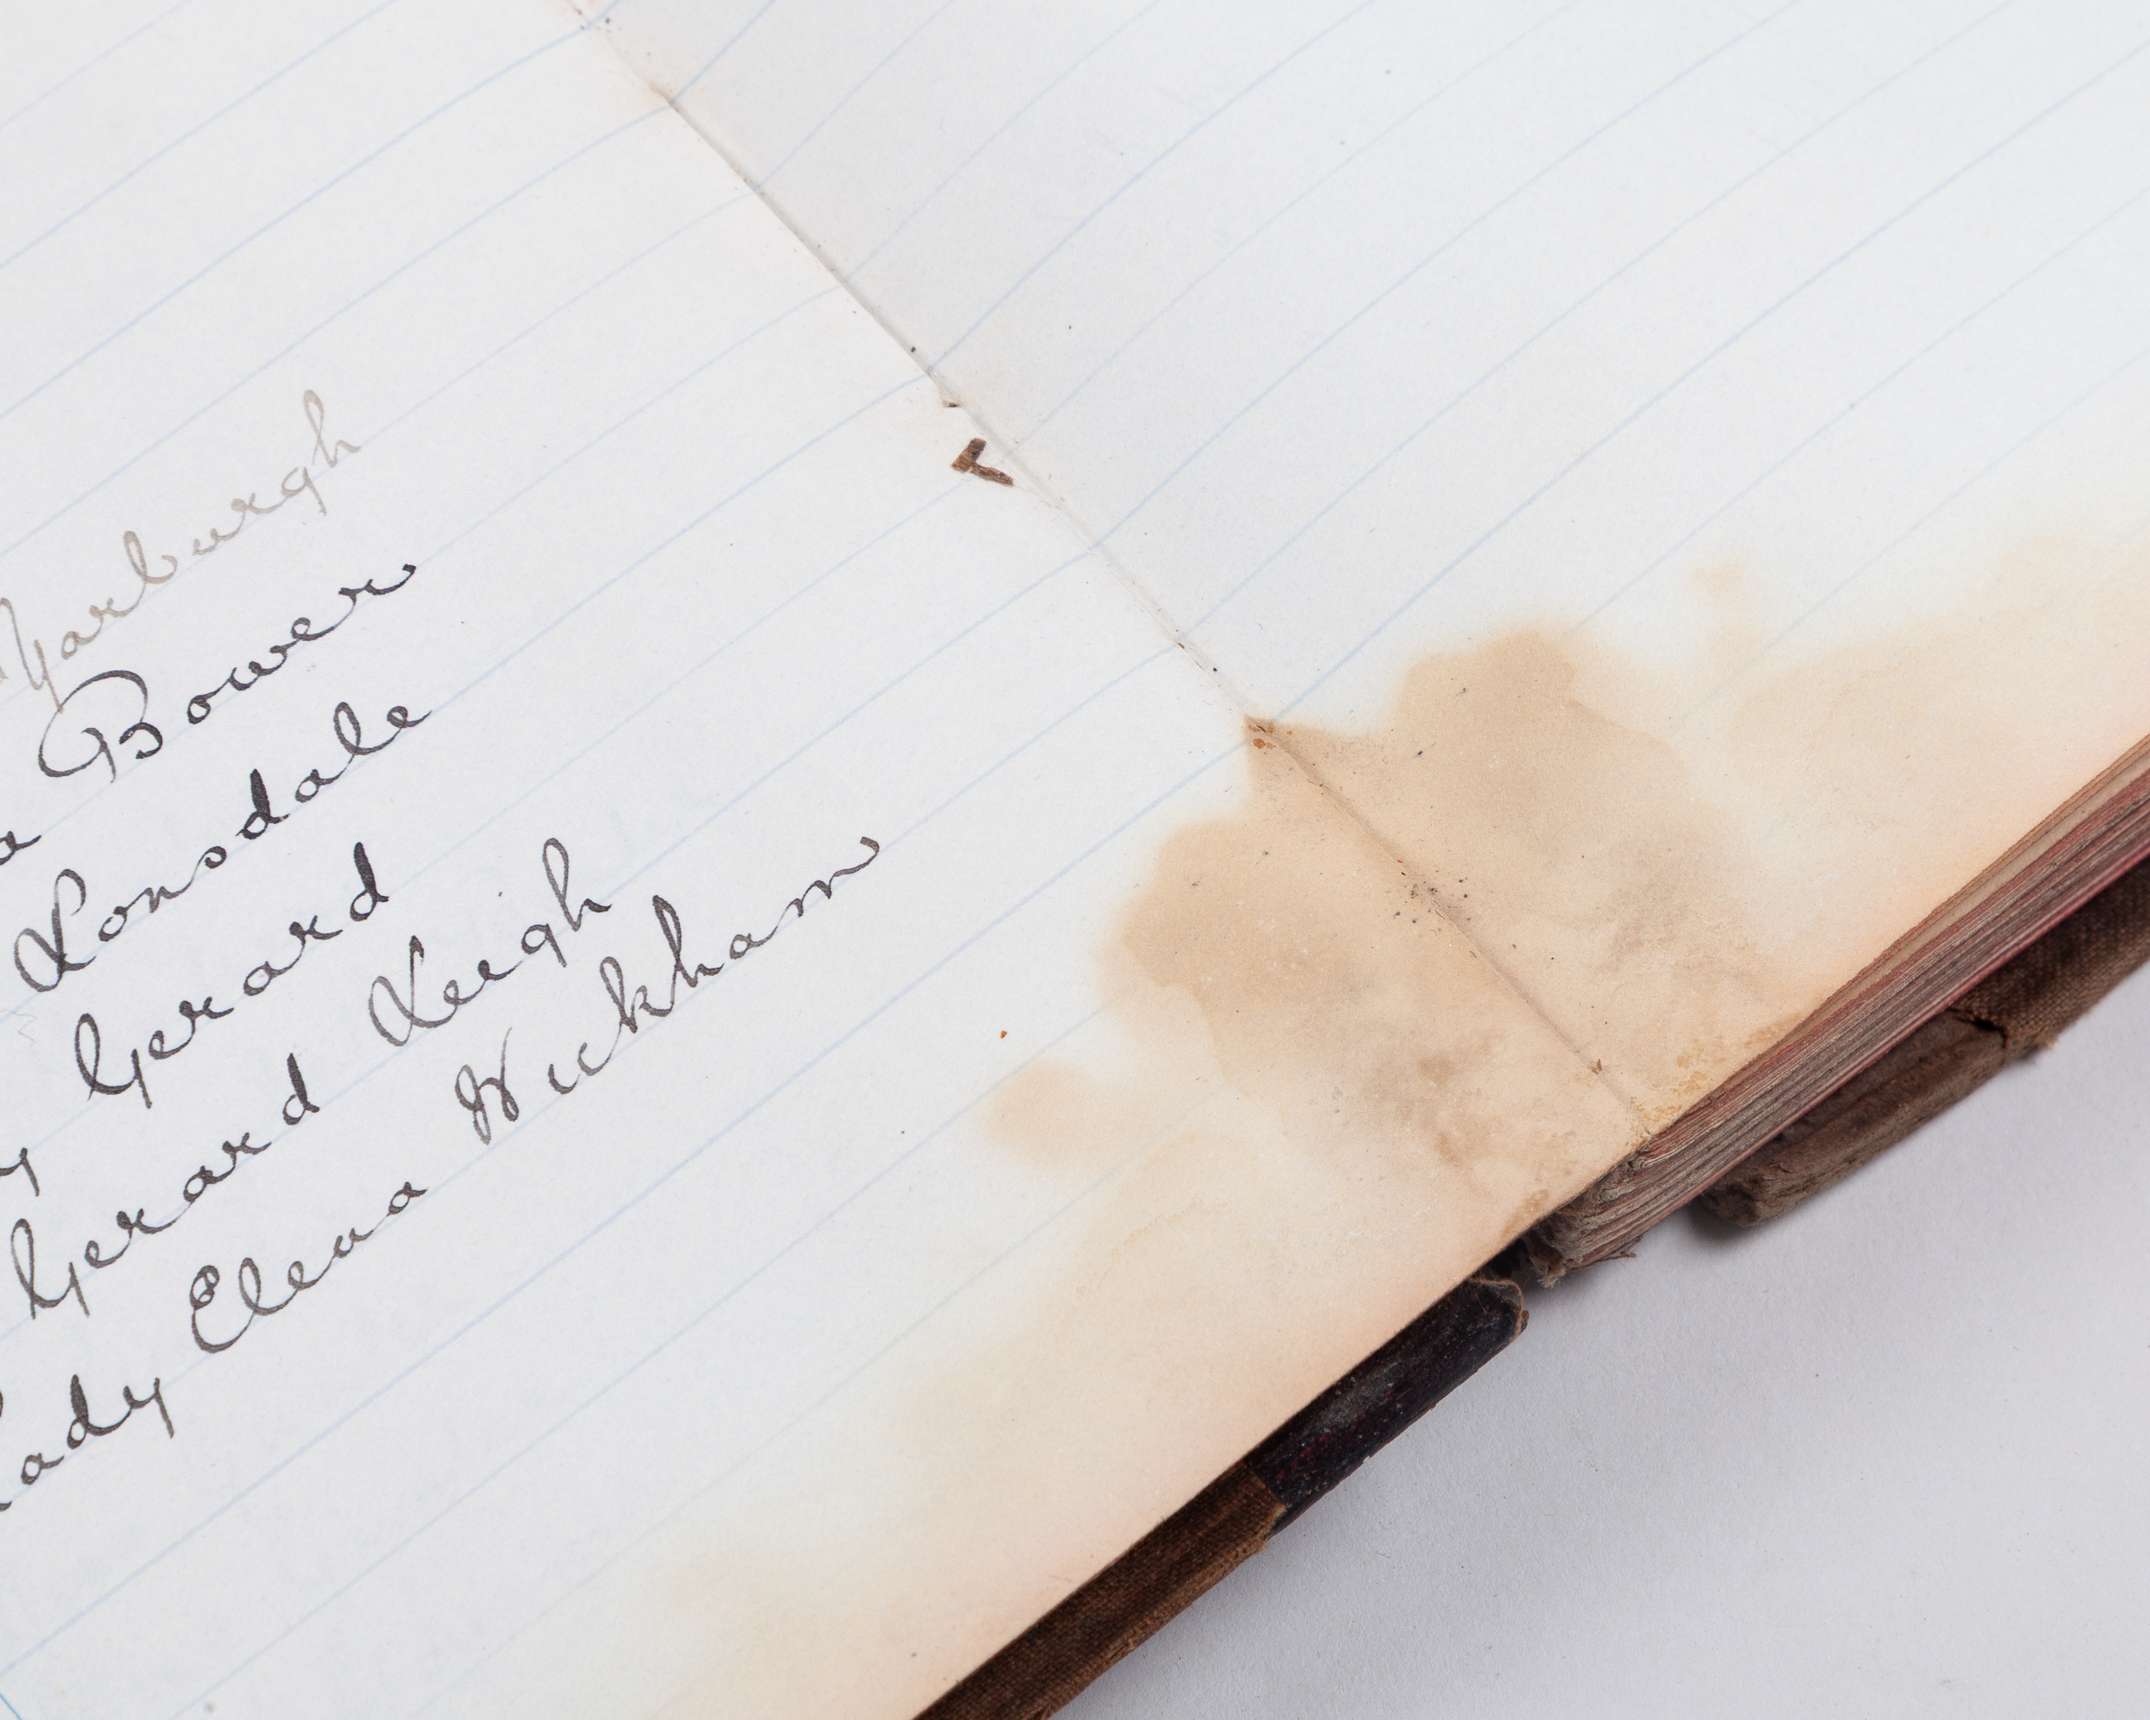 Yarburgh
Bower
Lonsdale
Gerard
Gerard Leigh
Lady Elena Wickham